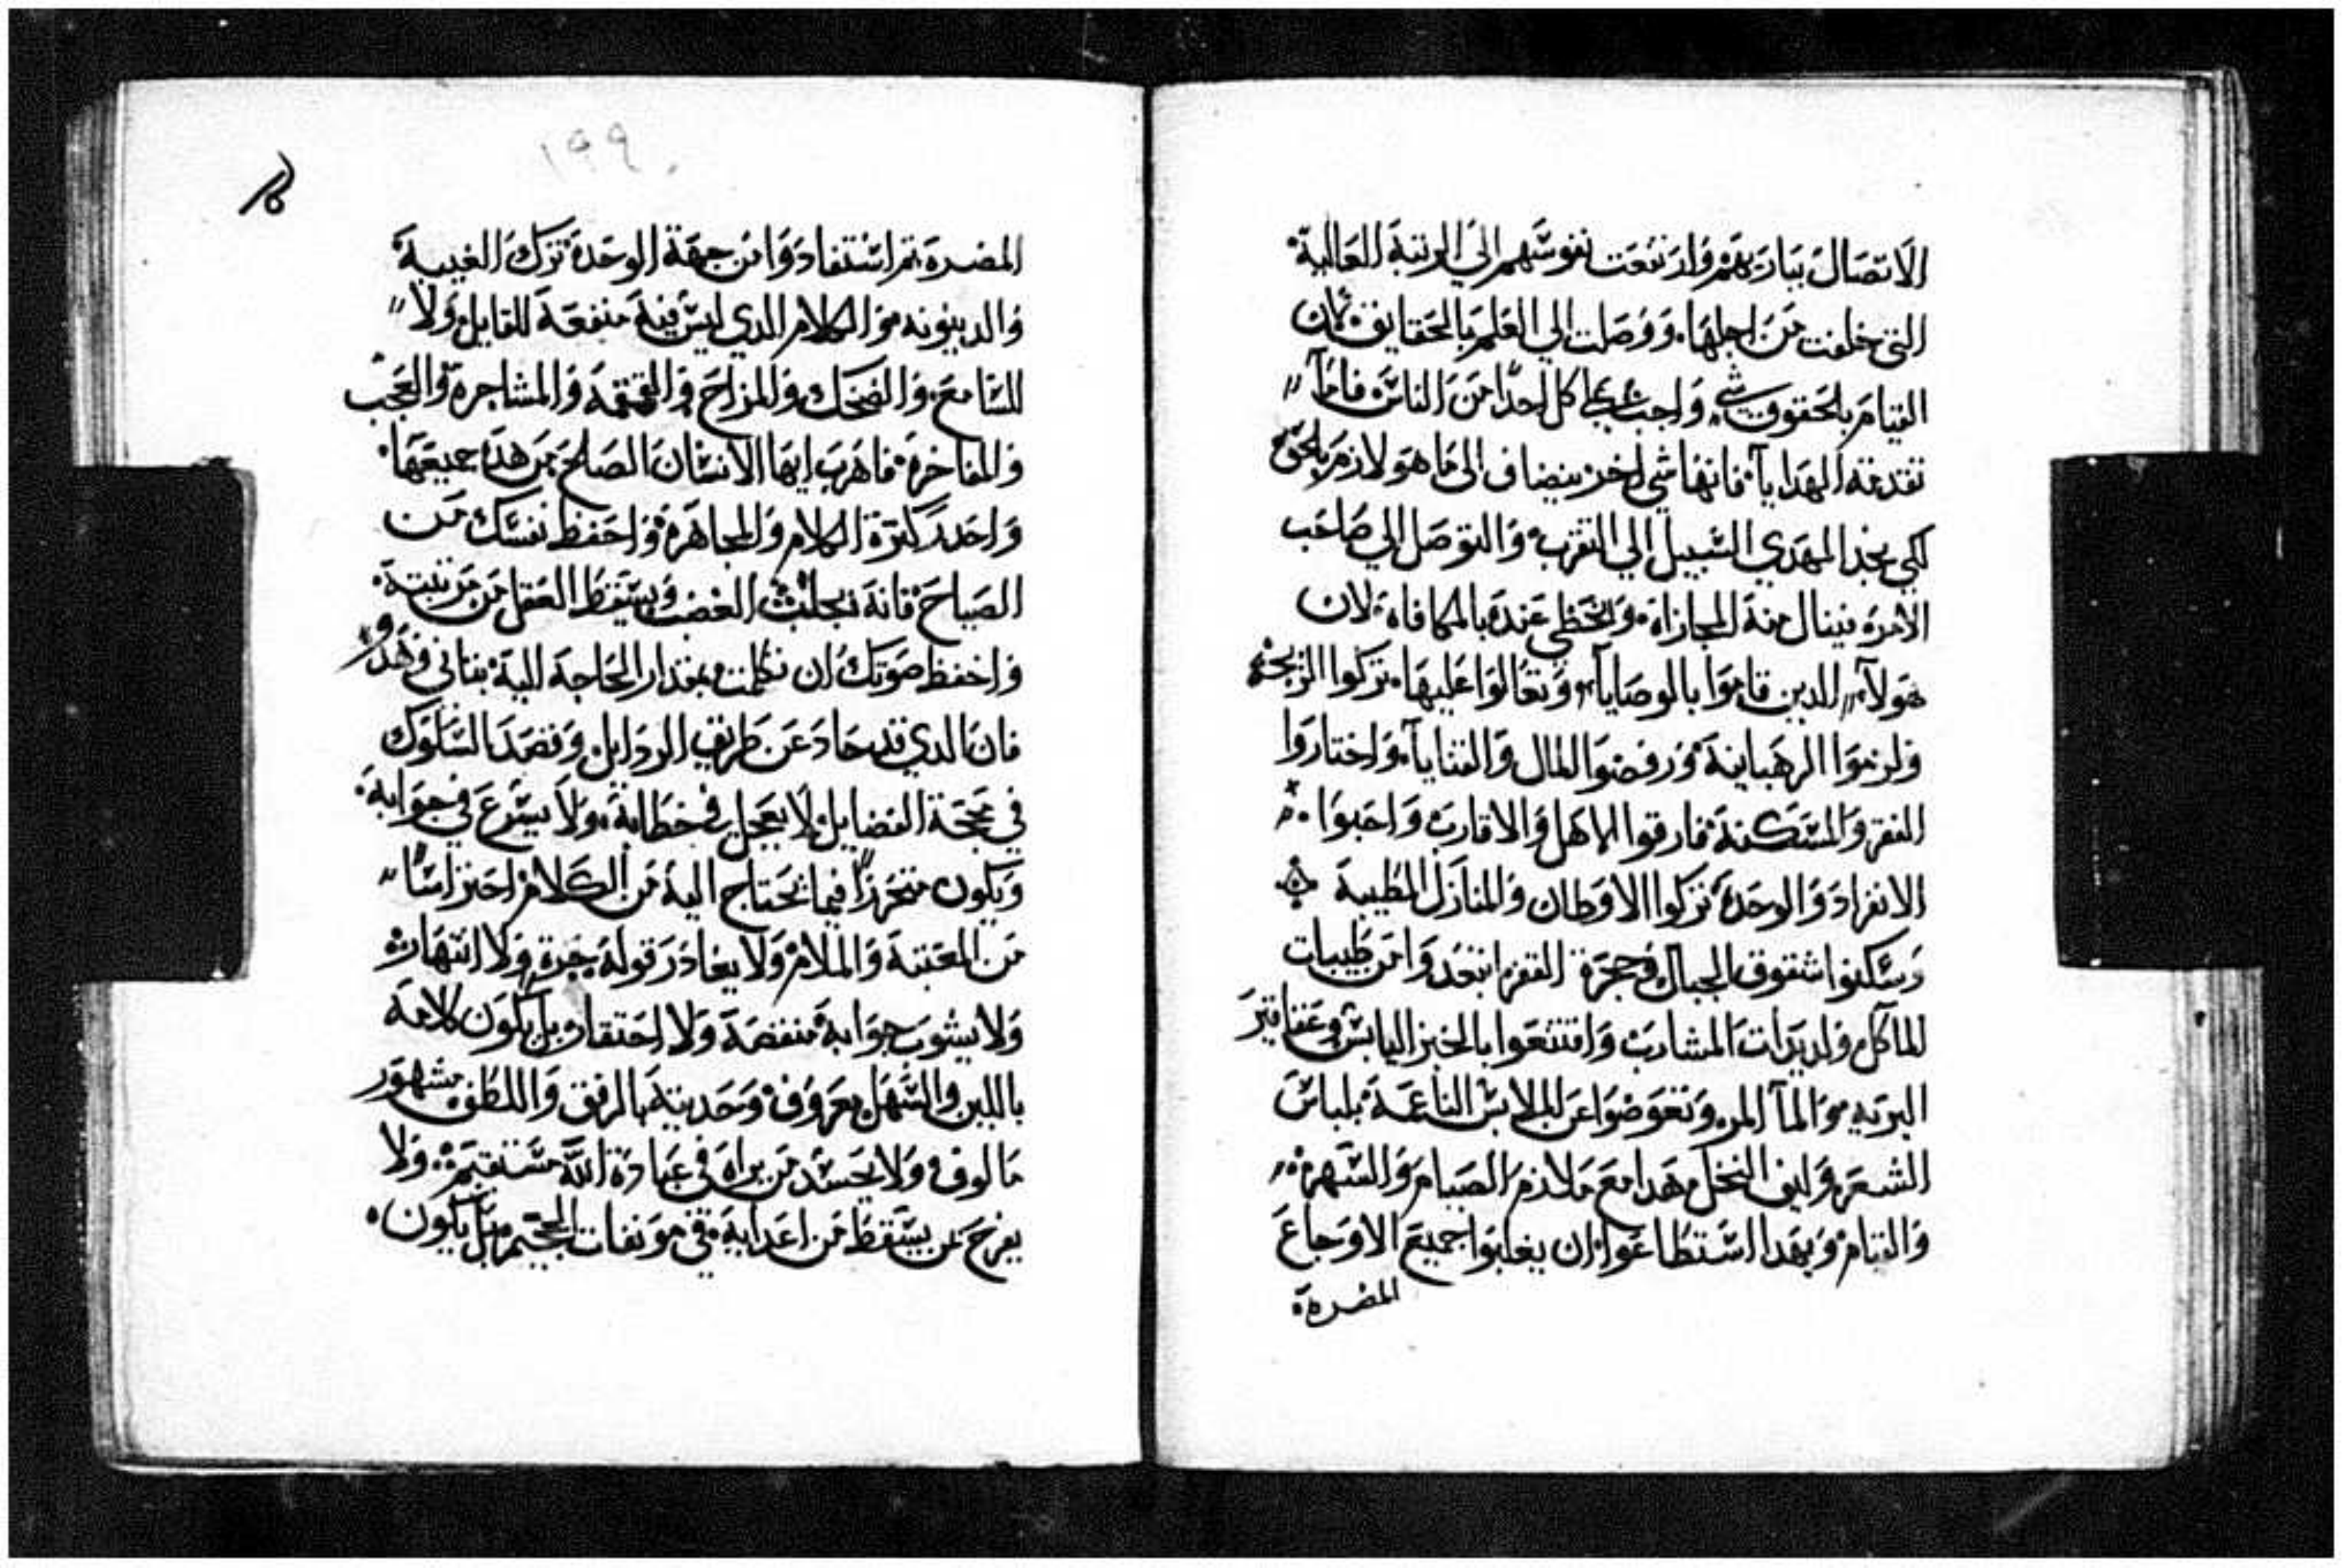 الاتصال بباريهم وارتفعت نفوسهم الي الرتبة العالية
التي خلقت من اجلها. ووصلت الي العلم بالحقايق. لان
القيام بالحقوق شي واجب علي كل احدا من الناس فاما
تقدمة الهدايا. فانها شي اخر ينضاف الى ما هو لازم بلحق
لكي يجد المهدي السبيل الي التقرب. والتوصل الي صاحب
الامره فينال منه المجازاه. ويحظي عنده بالمكافاه. لان
هولاء الدين قاموا بالوصايا. وتعالوا عليها. تركوا الزيجه
ولزموا الرهبانية. ورفضوا المال والقنايا. واختاروا
الفقر والمسكنة. فارقوا الاهل والاقارب واحبوا
الانفراد والوحدة. تركوا الاوطان والمنازل الطيبة
وسكنوا شقوق الجبال وحجرة القفر ابتعدوا من طيبات
المآكل ولديدات المشارب واقتنعوا بالخبز اليابس وعقاقير
البريه والمآ المر. وتعوضوا عن الملابس الناعمة. بلباس
الشعر وليف النخل. هدا مع ملازم الصيام والسهر
والقيام. وبهدا استطاعوا ان يغلبوا جميع الاوجاع
المضرة
١٩٩
المضرة. تم استفادوا من جهة الوحدة ترك الغيبة
والدينونه. والكلام الدي ليس فية منفعة للقايل ولا
للسامع. والضحك والمزاح والقهقهة والمشاجرة والعجب
والمفاخرة. فاهرب ايها الانسان الصلح من هده جميعها.
واحدر كترة الكلام والمجاهرة. واحفظ نفسك من
الصياح. فانة يجلب الغضب ويسقط العقل من مرتبتة.
واخفظ صوتك ان تكلمت بمقدار الحاجة الية بتاني وهدو
فان الدي قد حاد عن طريق الردايل. وقصد السلوك
في محجة الفضايل. لا يعجل في خطابة. ولا يسرع في جوابة.
ويكون متحرزا فيما يحتاج الية من الكلام احتراسا
من المعتبة والملام. ولا يغادر قولة ولا انتهارة
ولا يشوب جوابة منقصة ولا احتقار. بل يكون كلامة
باللين والسهل معروف. وحديتة بالرفق واللطف مشهور
مالوف. ولا يحسد من يراه في عبادة الله مستقيم. ولا
يفرح بمن يسقط من اعداية. في موبقات الجحيم. بل يكون.